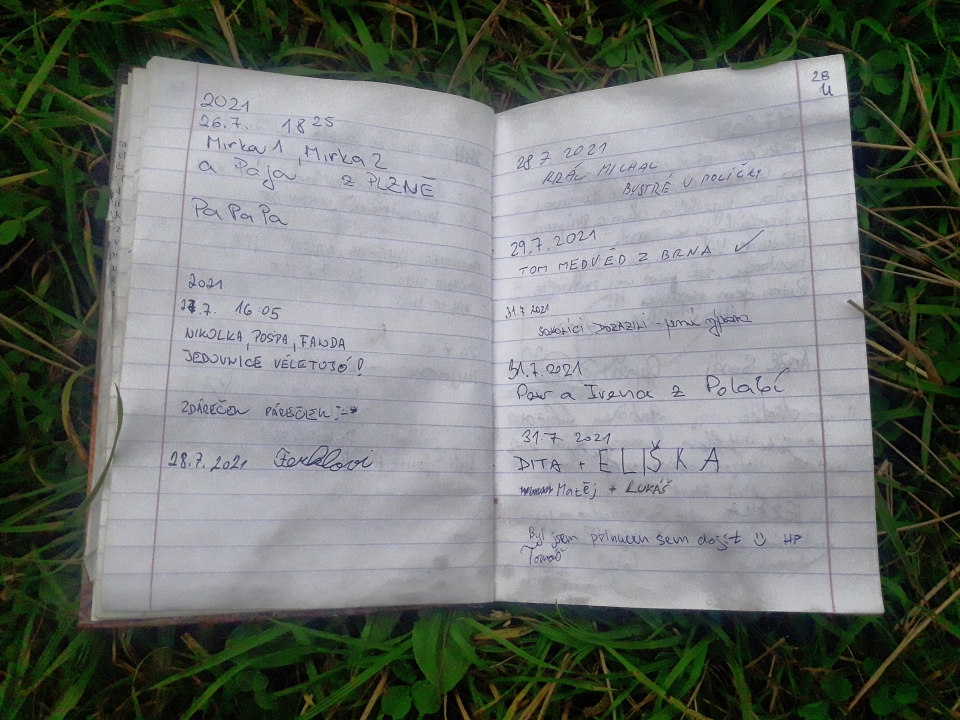 2021
26.7. 18 25
Mirka 1, Mirka 2
a Pája z PLZNĚ
Pa Pa Pa
2021
27.7. 16:05
NIKOLKA, POSPA, FANDA
JEDOVNICE VÉLETUJÓ!
ZDÁREČEK PÁREČEK :-*
28.7.2021
28
28.7 2021
KRÁL MICHAL
BYSTRÉ U POLIČKY
29.7.2021
TOM MEDVĚD Z BRNA ✓
31.7 2021
31.7.2021
a Irena z Polabí
31.7. 2021
DITA + ELIŠKA
Matěj + LUKÁŠ
Byl jsem přinucen sem dojít HP
Tomáš